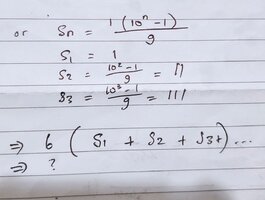 or Sn = 1 (10ⁿ - 1) / 9
S1 = 1
S2 = 10² - 1 / 9 = 11
S3 = 10³ - 1 / 9 = 111
⇒ 6 ( S1 + S2 + S3+) ...
⇒ ?